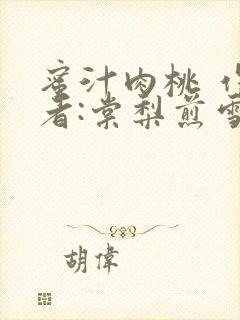 蜜汁肉桃 作
者:棠梨煎雪
胡偉